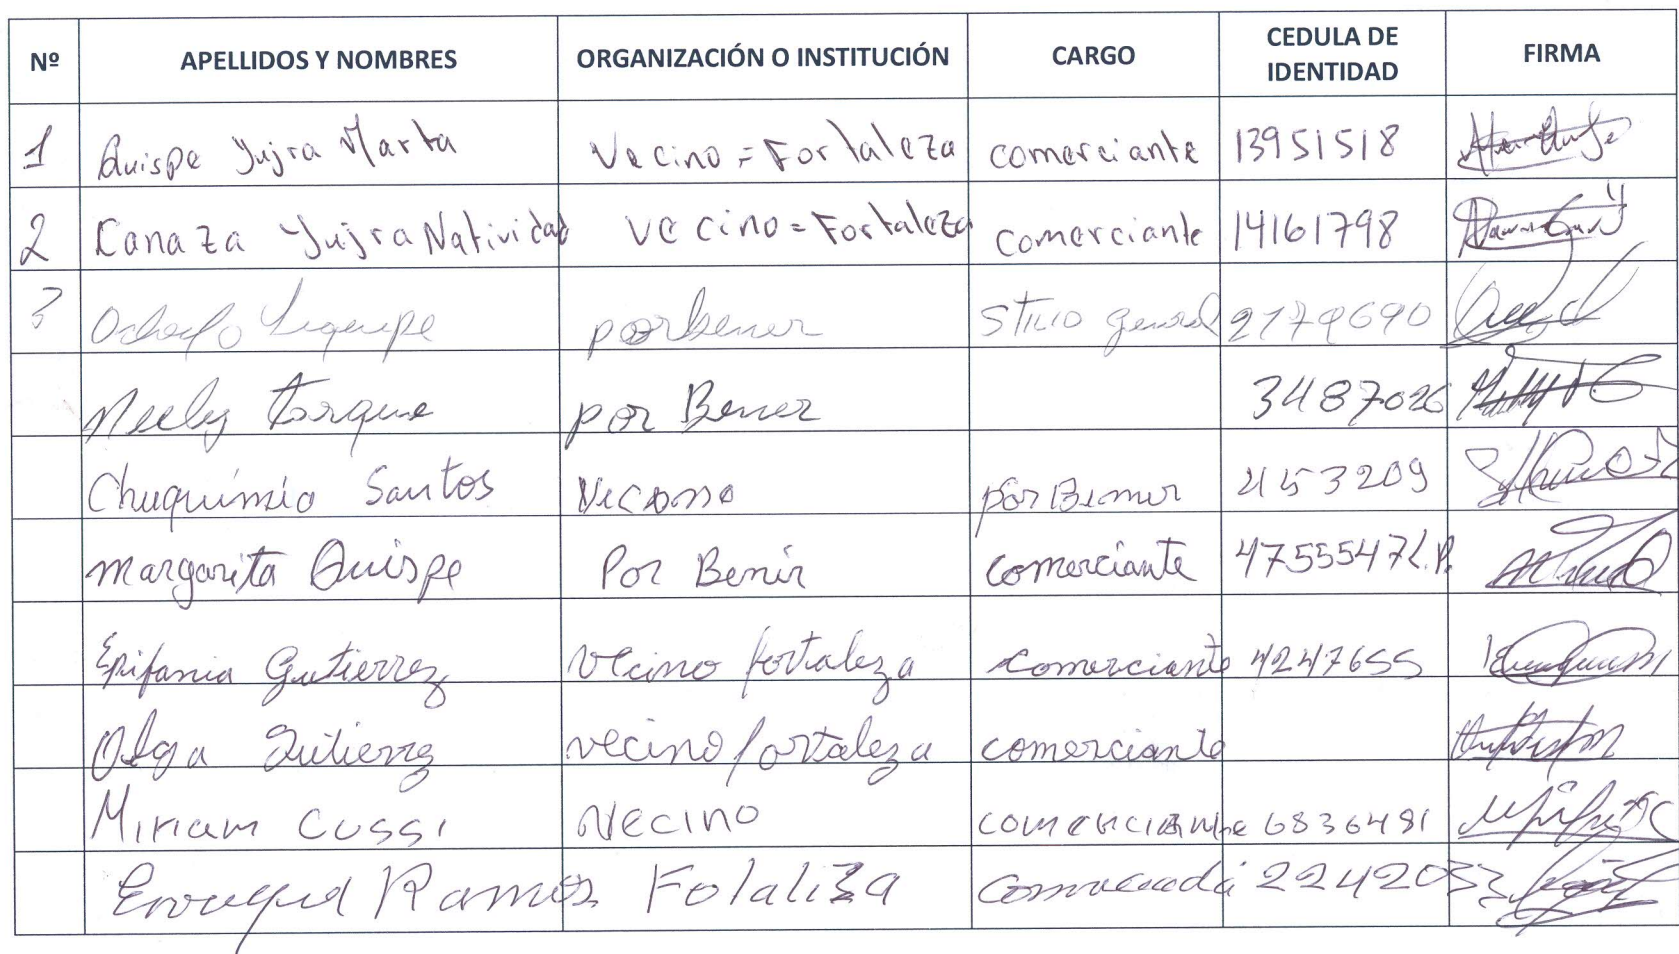 Nº APELLIDOS Y NOMBRES ORGANIZACIÓN O INSTITUCIÓN CARGO CEDULA DE IDENTIDAD FIRMA
1 Quispe Yujra Marta Vecino = Fortaleza comerciante 13951518
2 Canaza Yujra Natividad vecino = Fortaleza comerciante 14161798
3 porbener STRIO General 2179690
Neely por Bener 3487026
Chuquimia Santos por Bemur 2153209
Margarita Quispe Por Benir comerciante 4755547 L.P.
Epifania Gutierrez vecino fortaleza comerciante 4247655
Olga Gutierrez vecino fortaleza comerciante
Miriam Cussi Vecino comerciante 6836481
Ramos Folaliza